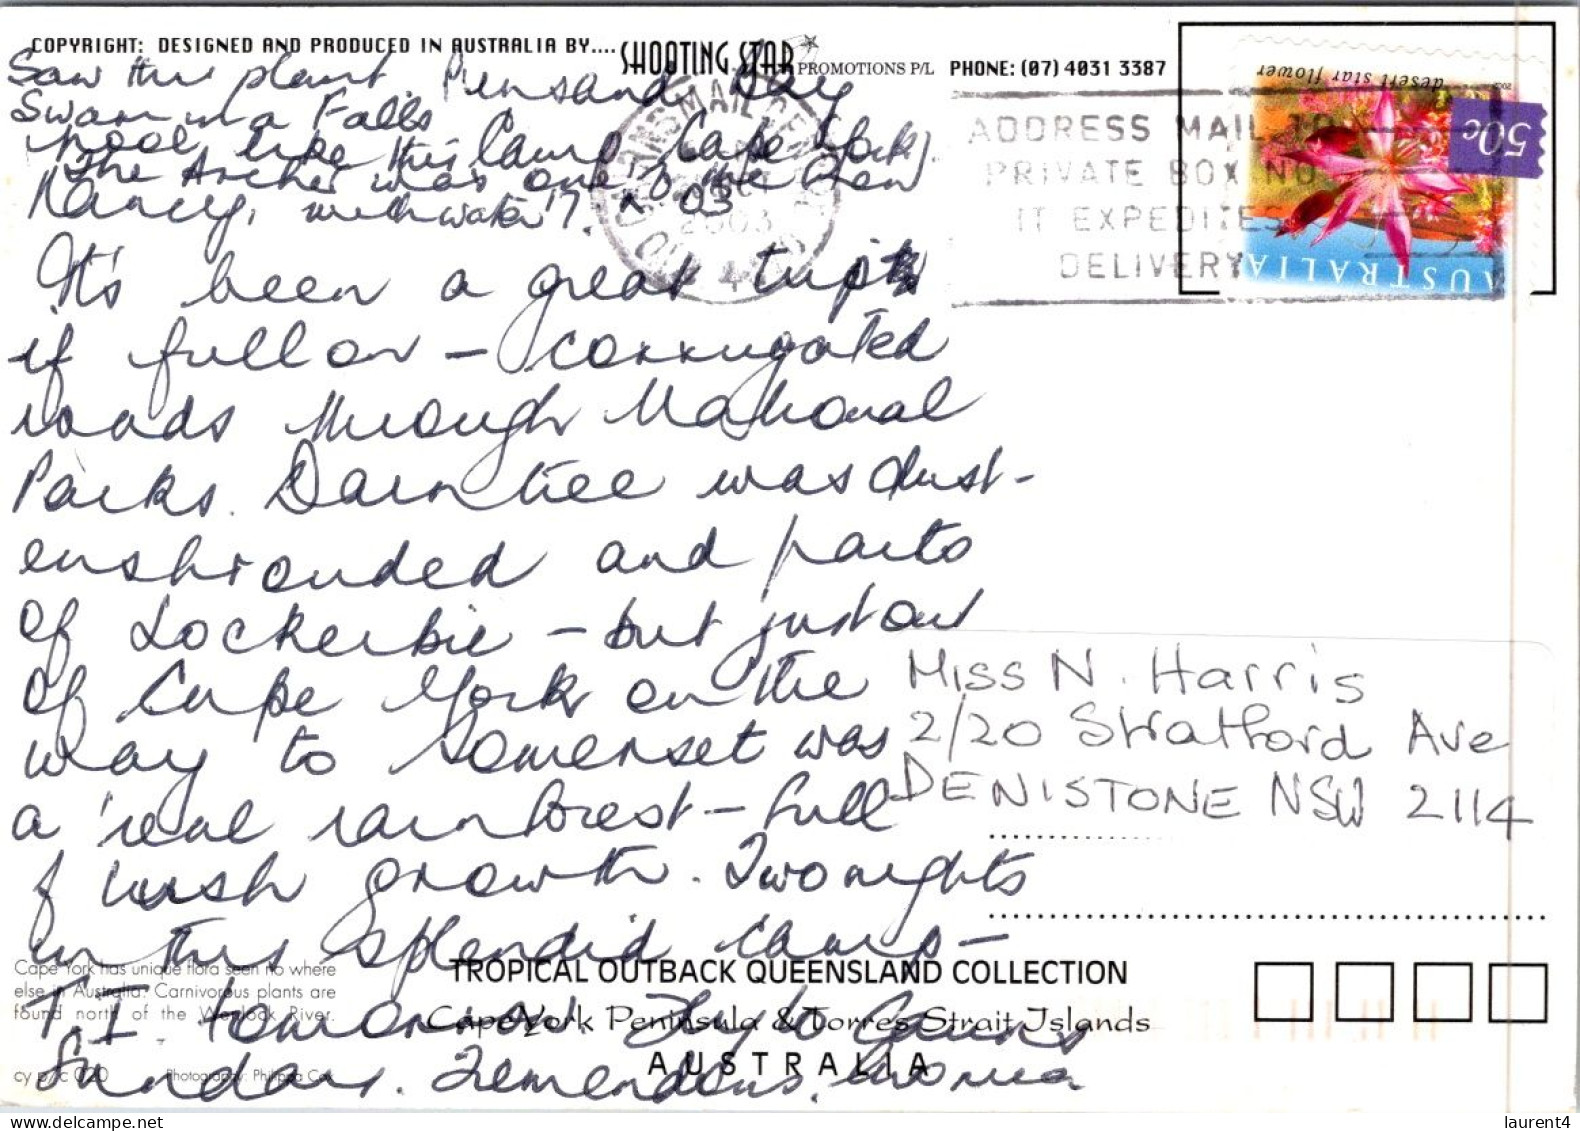 COPYRIGHT: DESIGNED AND PRODUCED IN AUSTRALIA BY.... SHOOTING STAR PROMOTIONS P/L PHONE: (07) 4031 3387
Saw this plant Punsand Bay
Swam in a Falls
pool like this Camp Cape York.
The Archer was one of the
Nancy, with water 7. X 03
It's been a great trip
if full on - corrugated
roads through National
Parks. Daintree was dust-
enshrouded and parts
of Lockerbie - but just out
of Cape York on the
way to Somerset was
a 'real rainforest - full
of lush growth. Two nights
in this splendid camp -
T.I. tomorrow Fly to Cairns
Sunday. Tremendous.
desert star flower
50c
AUSTRALIA
CAIRNS MAIL CENTRE
2003
QLD 4870
ADDRESS MAIL TO
PRIVATE BOX NO
IT EXPEDITES
DELIVERY
Miss N. Harris
2/20 Stratford Ave
DENISTONE NSW 2114
Cape York has unique flora seen no where
else in Australia. Carnivorous plants are
found north of the Wenlock River.
cy p/c 020 Photography: Philippa Cox
TROPICAL OUTBACK QUEENSLAND COLLECTION
Cape York Peninsula & Torres Strait Islands
AUSTRALIA
www.delcampe.net
laurent4